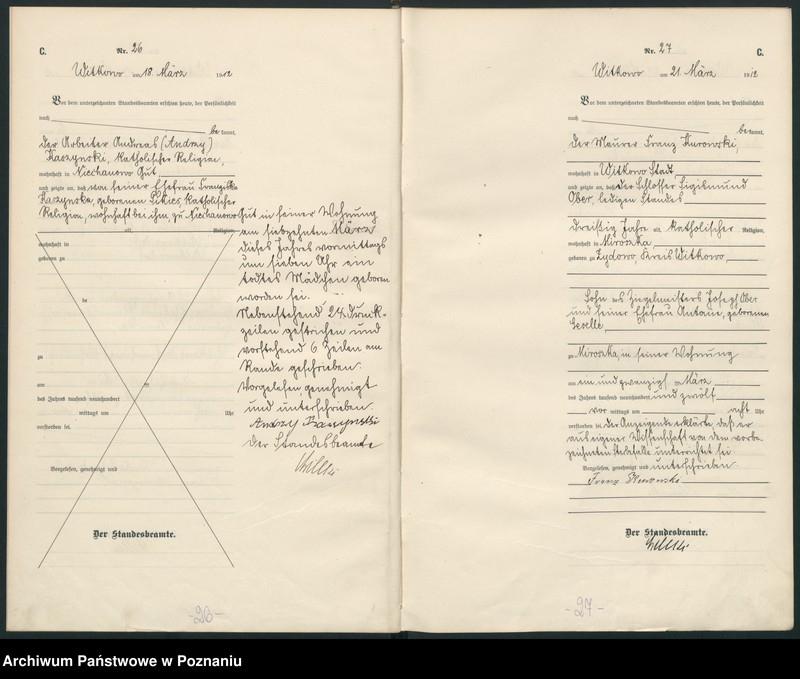 C.
Nr. 26
Witkowo am 18. März 1912
Vor dem unterzeichneten Standesbeamten erschien heute, der Persönlichkeit
nach
be kannt,
der Arbeiter Andreas (Andrzy)
Kaczynski, katholischer Religion,
wohnhaft in Niechanowo Gut
und zeigte an, daß von seiner Ehefrau Franziska
Kaczynska, geborenen katholischer
Religion, wohnhaft bei ihm, zu Niechanowo Gut in seiner Wohnung
alt, Religion,
am siebzehnten März
dieses Jahres vormittags
um sieben Uhr ein
todtes Mädchen geboren
worden sei.
Nebenstehend 24 Druck-
zeilen gestrichen und
vorstehend 6 Zeilen am
Rande geschrieben.
Vorgelesen, genehmigt
und unterschrieben.
Andrzy Kaczynski
Der Standesbeamte
wohnhaft in
geboren zu
zu
am
des Jahres tausend neunhundert
mittags um Uhr
verstorben sei.
Vorgelesen, genehmigt und
Der Standesbeamte.
-26-
Nr. 27
C.
Witkowo am 21. März 1912
Vor dem unterzeichneten Standesbeamten erschien heute, der Persönlichkeit
nach
be kannt,
der Maurer Franz Kurowski,
wohnhaft in Witkowo Stadt
und zeigte an, daß der Schlosser Sigismund
Ober, ledigen Standes
dreißig Jahre alt, katholischer Religion,
wohnhaft in Mroszka
geboren zu Zydowo, Kreis Witkowo
Sohn des Ziegelmeisters Joseph Ober
und seiner Ehefrau geborenen
zu Mroszka, in seiner Wohnung
am ein und zwanzigsten März
des Jahres tausend neunhundert und zwölf
vor mittags um acht Uhr
verstorben sei. Der Anzeigende erklärte, daß er
aus eigener Wissenschaft von dem vorbe-
zeichneten Sterbefalle unterrichtet sei
Vorgelesen, genehmigt und unterschrieben
Franz Kurowski
Der Standesbeamte.
-27-
Archiwum Państwowe w Poznaniu